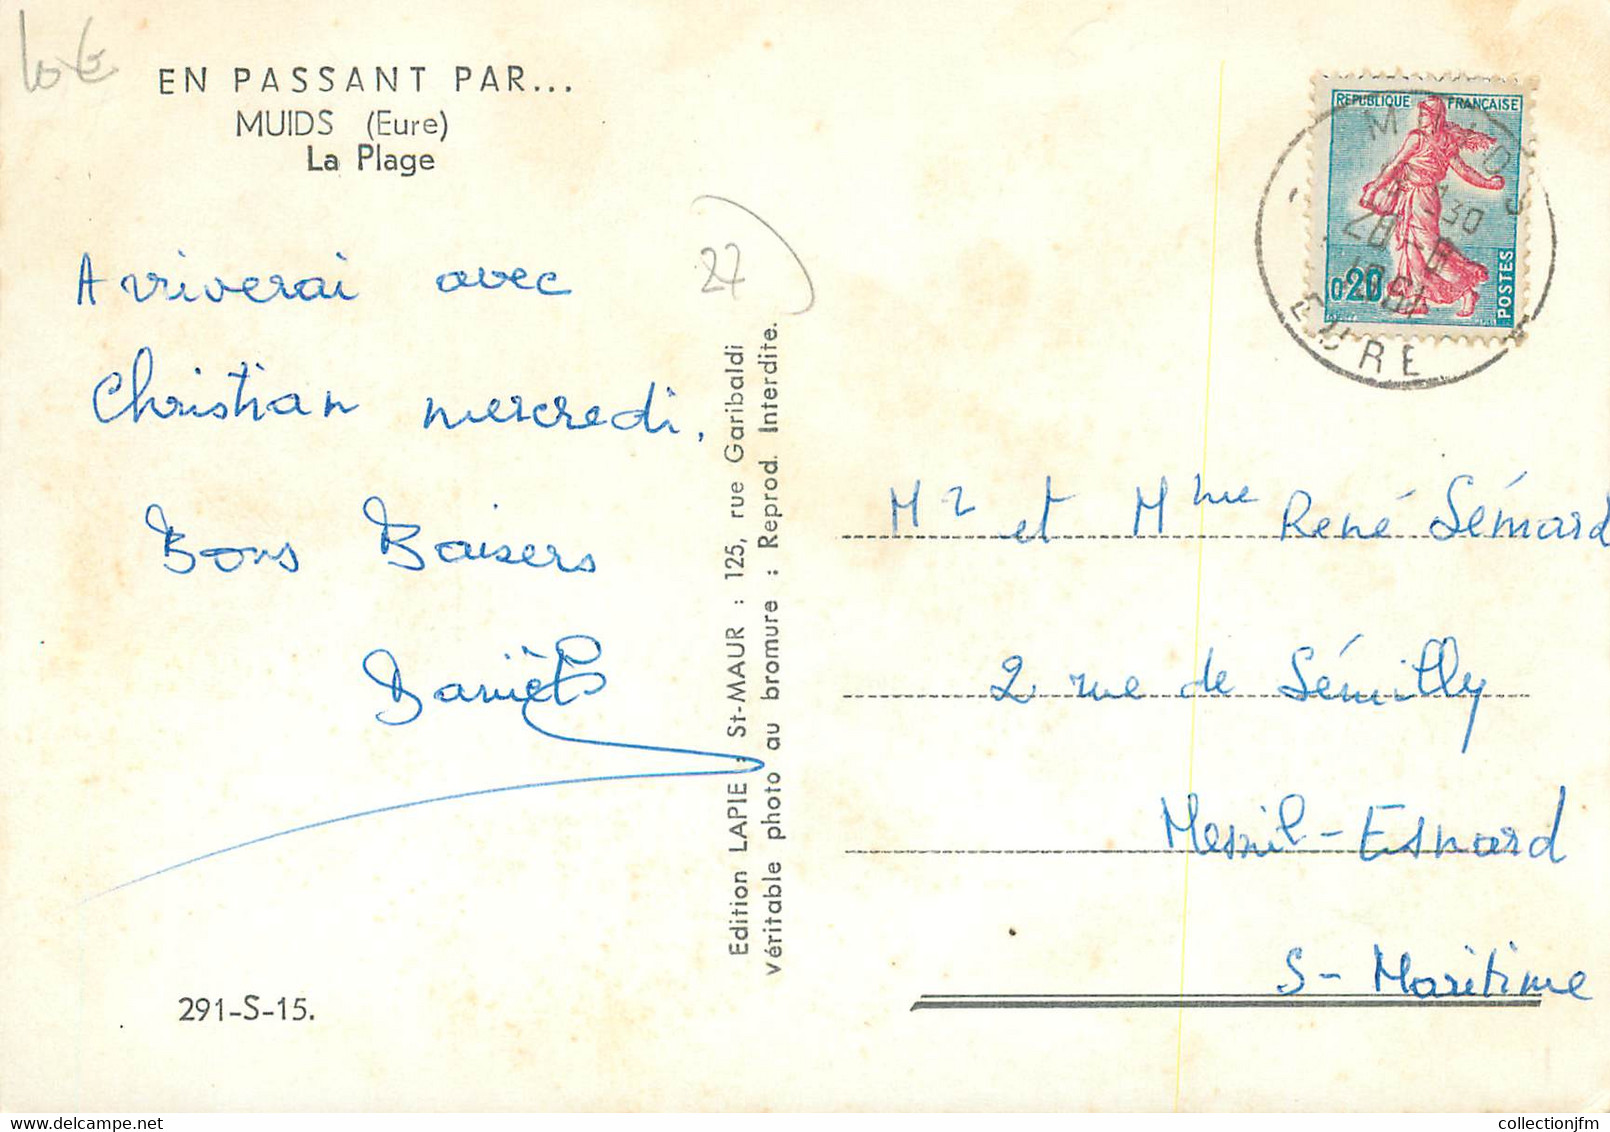 10 €
EN PASSANT PAR...
MUIDS (Eure)
La Plage
Arriverai avec
Christian mercredi.
Bons Baisers
Daniel
291-S-15.
27
Edition LAPIE : St-MAUR : 125, rue Garibaldi
Véritable photo au bromure : Reprod. Interdite.
REPUBLIQUE FRANÇAISE
0,20
POSTES
MUIDS
EURE
Mr et Mme René Sémard
2 rue de Sémilly
Mesnil-Esnard
S-Maritime
collectionjfm